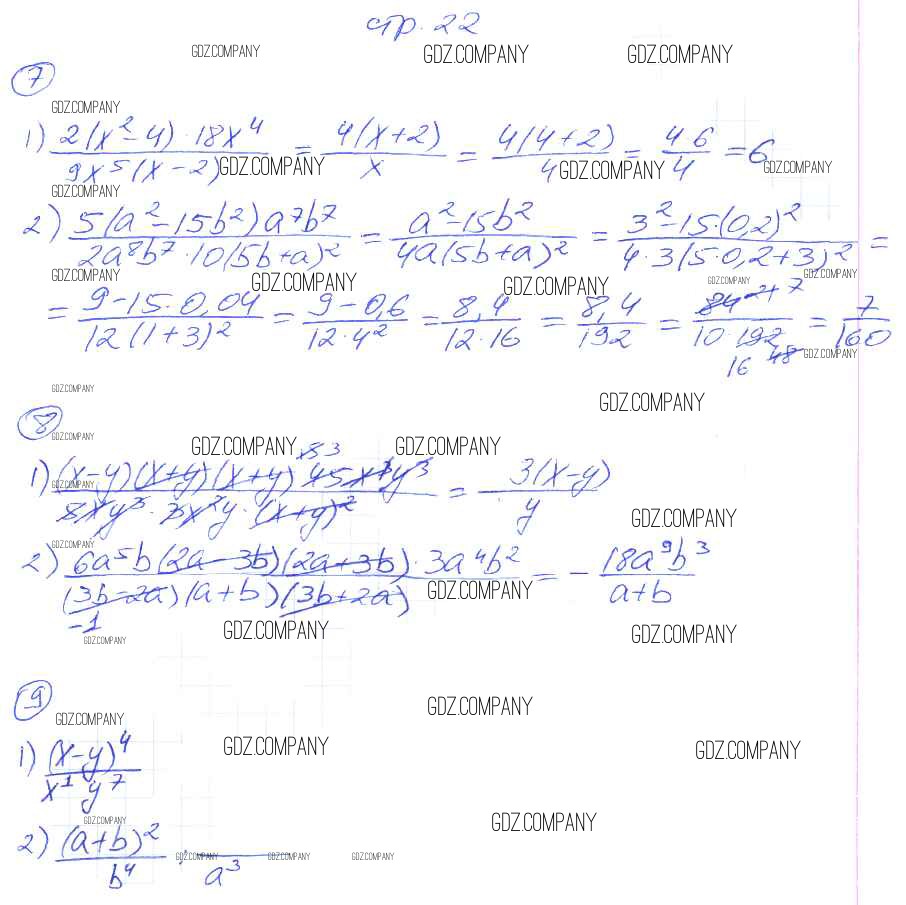 стр. 22
GDZ.COMPANY GDZ.COMPANY GDZ.COMPANY
7
GDZ.COMPANY
1) 2(x² - 4) · 18x⁴ / 9x⁵(x - 2) = 4(x + 2) / x = 4(4 + 2) / 4 = 4 6 / 4 = 6
GDZ.COMPANY GDZ.COMPANY GDZ.COMPANY
GDZ.COMPANY
2) 5(a² - 15b²) a⁷b⁷ / 2a⁸b⁷ · 10(5b + a)² = a² - 15b² / 4a(5b + a)² = 3² - 15·(0,2)² / 4·3(5·0,2 + 3)² =
GDZ.COMPANY GDZ.COMPANY GDZ.COMPANY GDZ.COMPANY GDZ.COMPANY
= 9 - 15·0,04 / 12(1 + 3)² = 9 - 0,6 / 12·4² = 8,4 / 12·16 = 8,4 / 192 = 84 21 7 / 10·192 48 16 = 7 / 160
GDZ.COMPANY
GDZ.COMPANY
GDZ.COMPANY
8
GDZ.COMPANY
GDZ.COMPANY GDZ.COMPANY
1) (x - y)(x + y)(x + y) 45x⁴y³ / 8x²y³ · 3x²y · (x + y)² = 3(x - y) / y
GDZ.COMPANY
GDZ.COMPANY
GDZ.COMPANY
2) 6a⁵b(2a - 3b)(2a + 3b) · 3a⁴b² / (3b - 2a)(a + b)(3b + 2a) = - 18a⁹b³ / a + b
-1
GDZ.COMPANY
GDZ.COMPANY GDZ.COMPANY GDZ.COMPANY
9
GDZ.COMPANY
GDZ.COMPANY
1) (x - y)⁴ / x¹ y⁷
GDZ.COMPANY GDZ.COMPANY
GDZ.COMPANY
GDZ.COMPANY
2) (a + b)² / b⁴ · / a³
GDZ.COMPANY GDZ.COMPANY GDZ.COMPANY